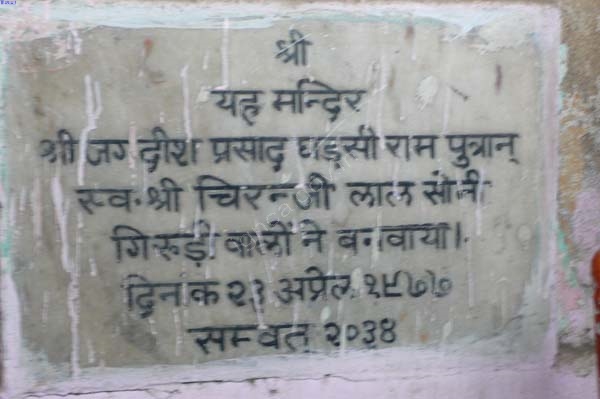 श्री
यह मन्दिर
श्री जगदीश प्रसाद घड़सी राम पुत्रान्
स्व. श्री चिरन्जी लाल सोनी
गिरुड़ी वालों ने बनवाया।
दिनांक २३ अप्रेल १९७७
सम्वत् २०३४